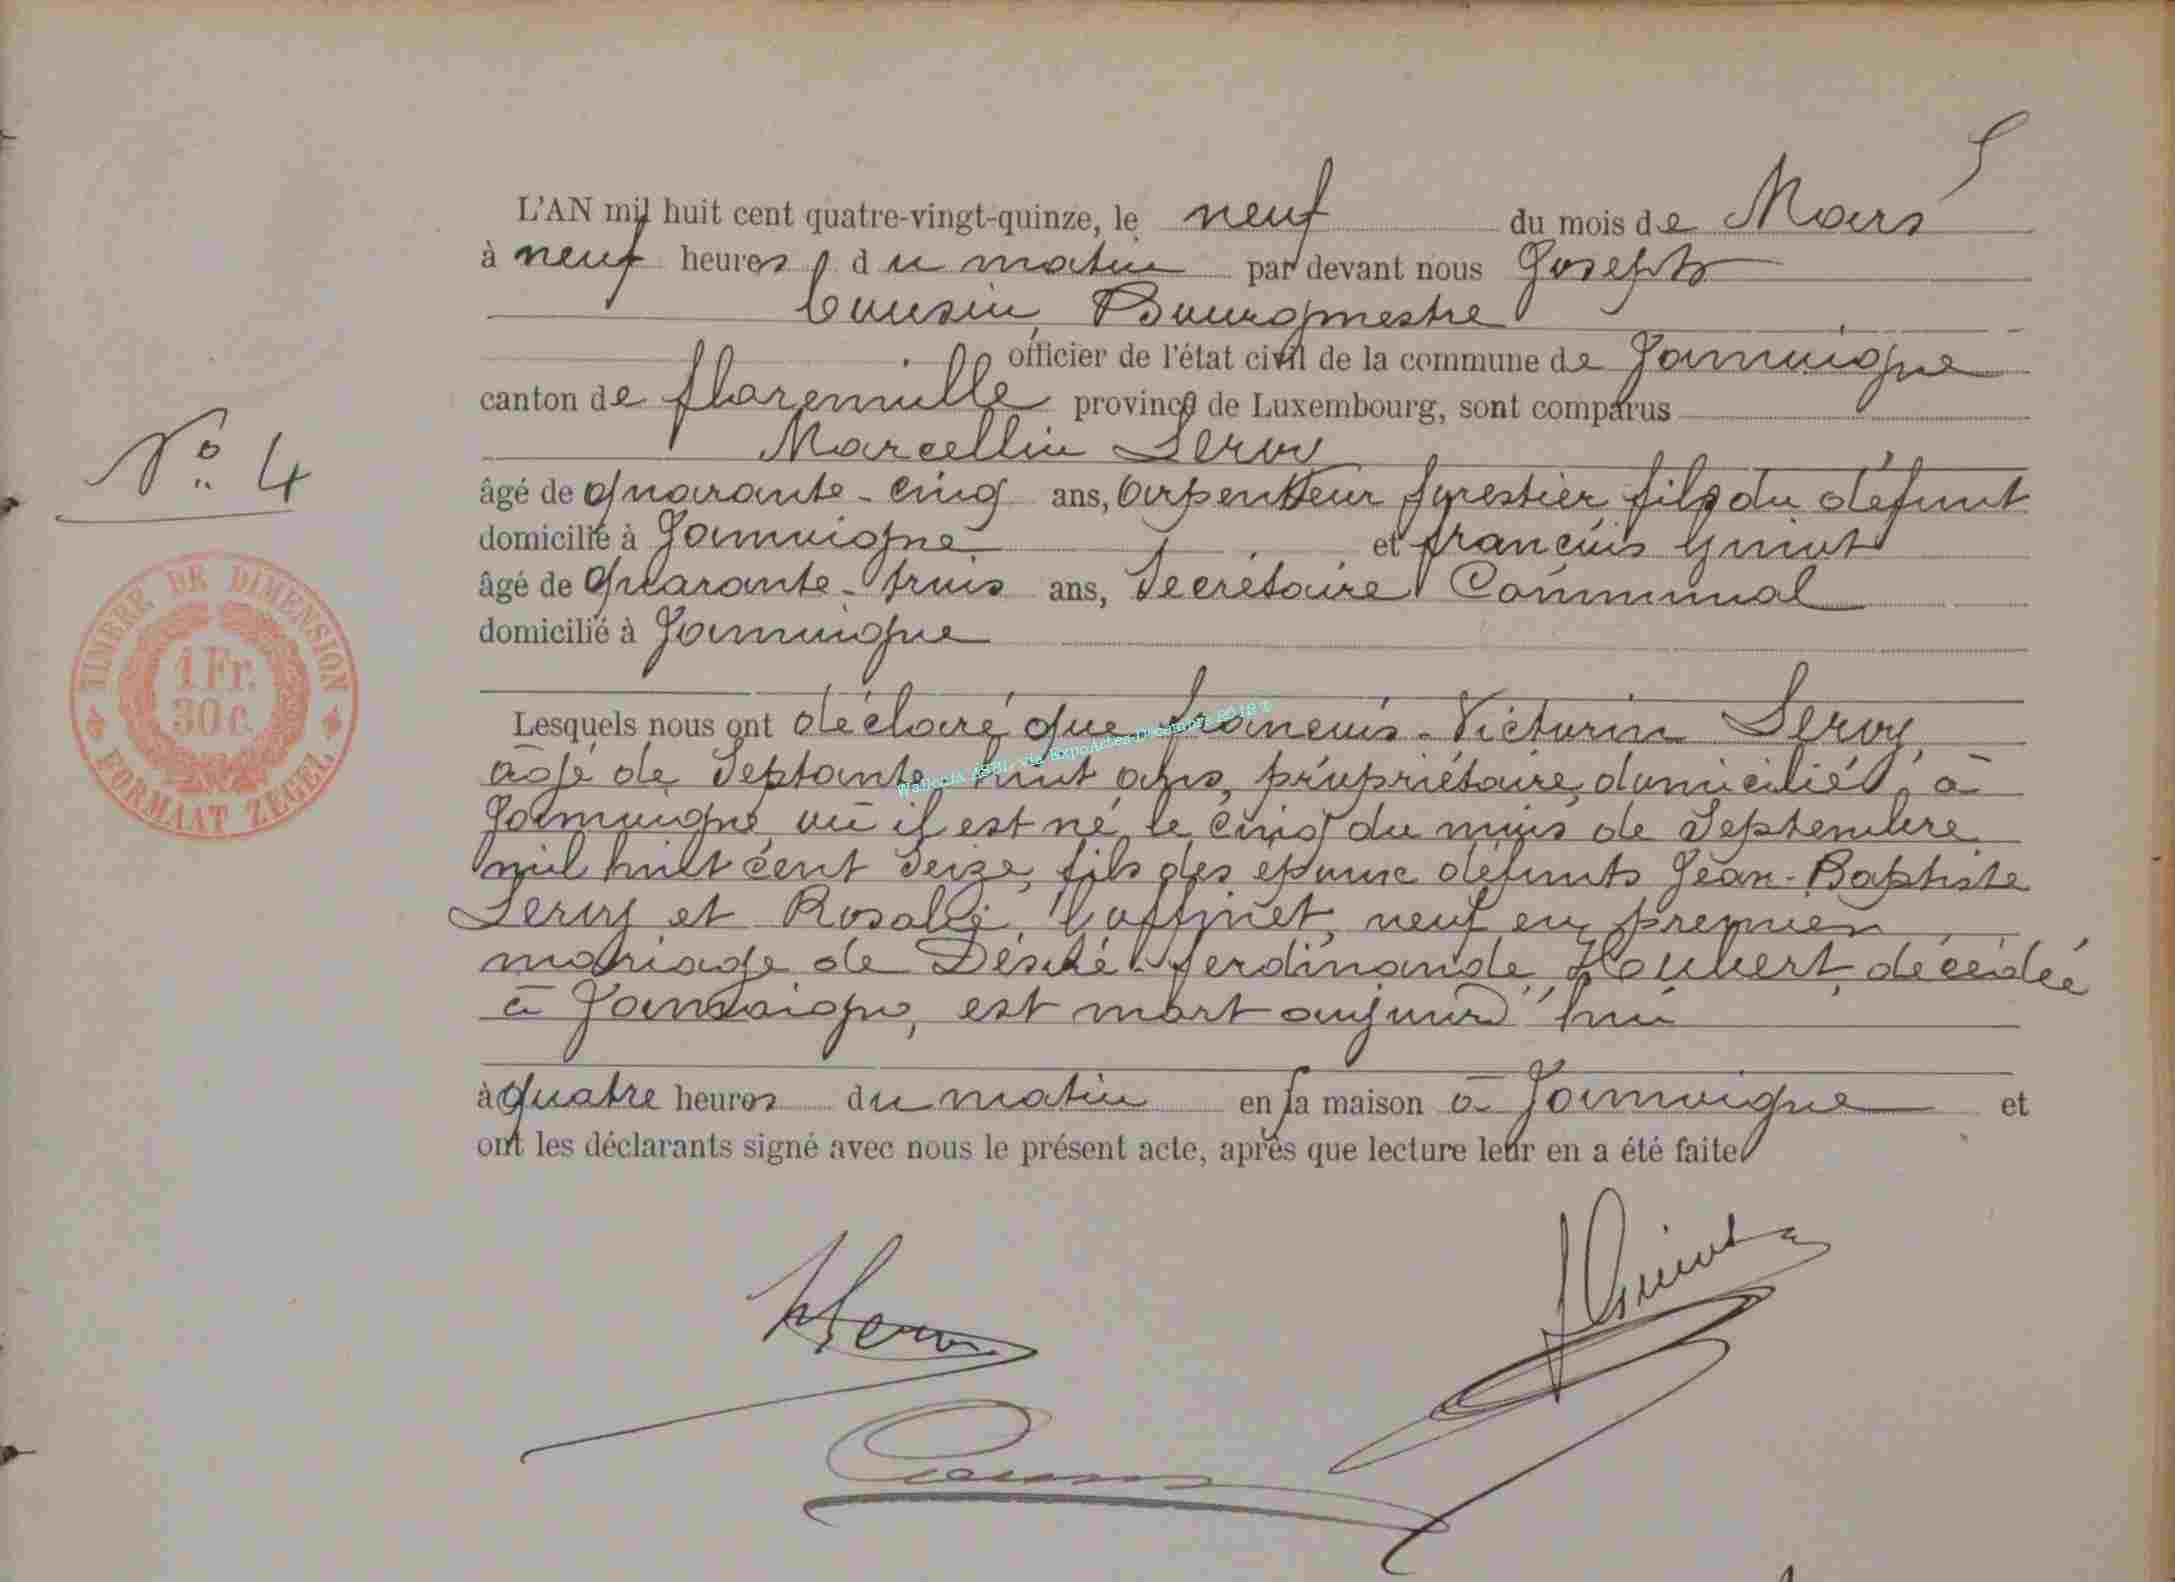 L'AN mil huit cent quatre-vingt-quinze, le neuf du mois de Mars
à neuf heures du matin par devant nous Joseph
Cousin, Bourgmestre
officier de l'état civil de la commune de Jamoigne
canton de florenville province de Luxembourg, sont comparus
Marcellin Leroy
âgé de quarante-cinq ans, arpenteur forestier, fils du défunt
domicilié à Jamoigne et françois Guiot
âgé de Quarante-trois ans, Secrétaire Communal
domicilié à Jamoigne
N° 4
TIMBRE DE DIMENSION
1 Fr.
30 c.
FORMAAT ZEGEL
Lesquels nous ont déclaré que françois-Victorin Leroy,
âgé de Septante huit ans, propriétaire, domicilié à
Jamoigne, où il est né le cinq du mois de Septembre
mil huit cent Seize, fils des époux défunts Jean-Baptiste
Leroy et Rosalie veuf en premier
mariage de Désiré-ferdinande décédée
à Jamoigne, est mort aujourd'hui
à quatre heures du matin en sa maison à Jamoigne et
ont les déclarants signé avec nous le présent acte, après que lecture leur en a été faite
MLeroy
fGuiot
Cousin